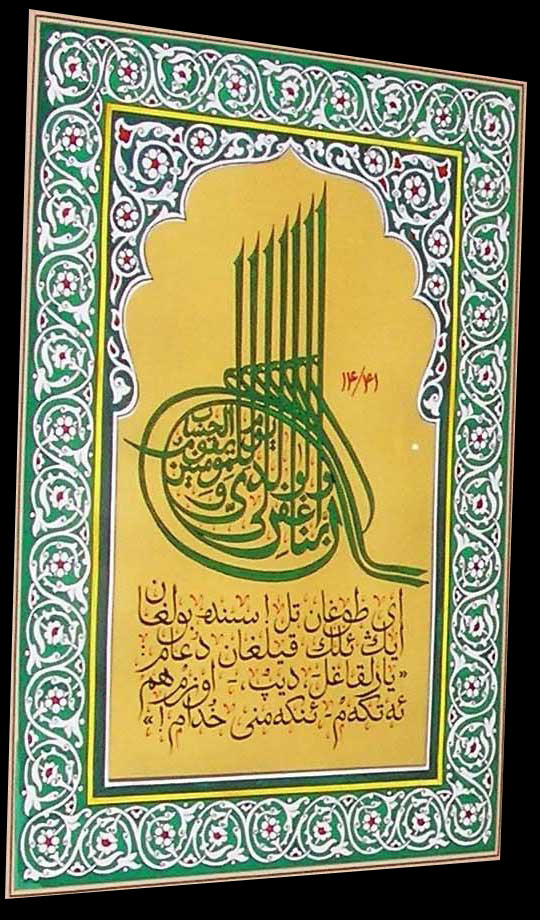 ۱۴/۴۱
ربنا اغفرلي ولوالدي وللمؤمنين يوم يقوم الحساب
اى طوغان تل! سنده بولغان
ايڭ ئلك قيلغان دعام:
«يارلقاغل - ديب، - اوزم هم
ئه‌تكه‌م - ئنكه‌منى خُدام!»